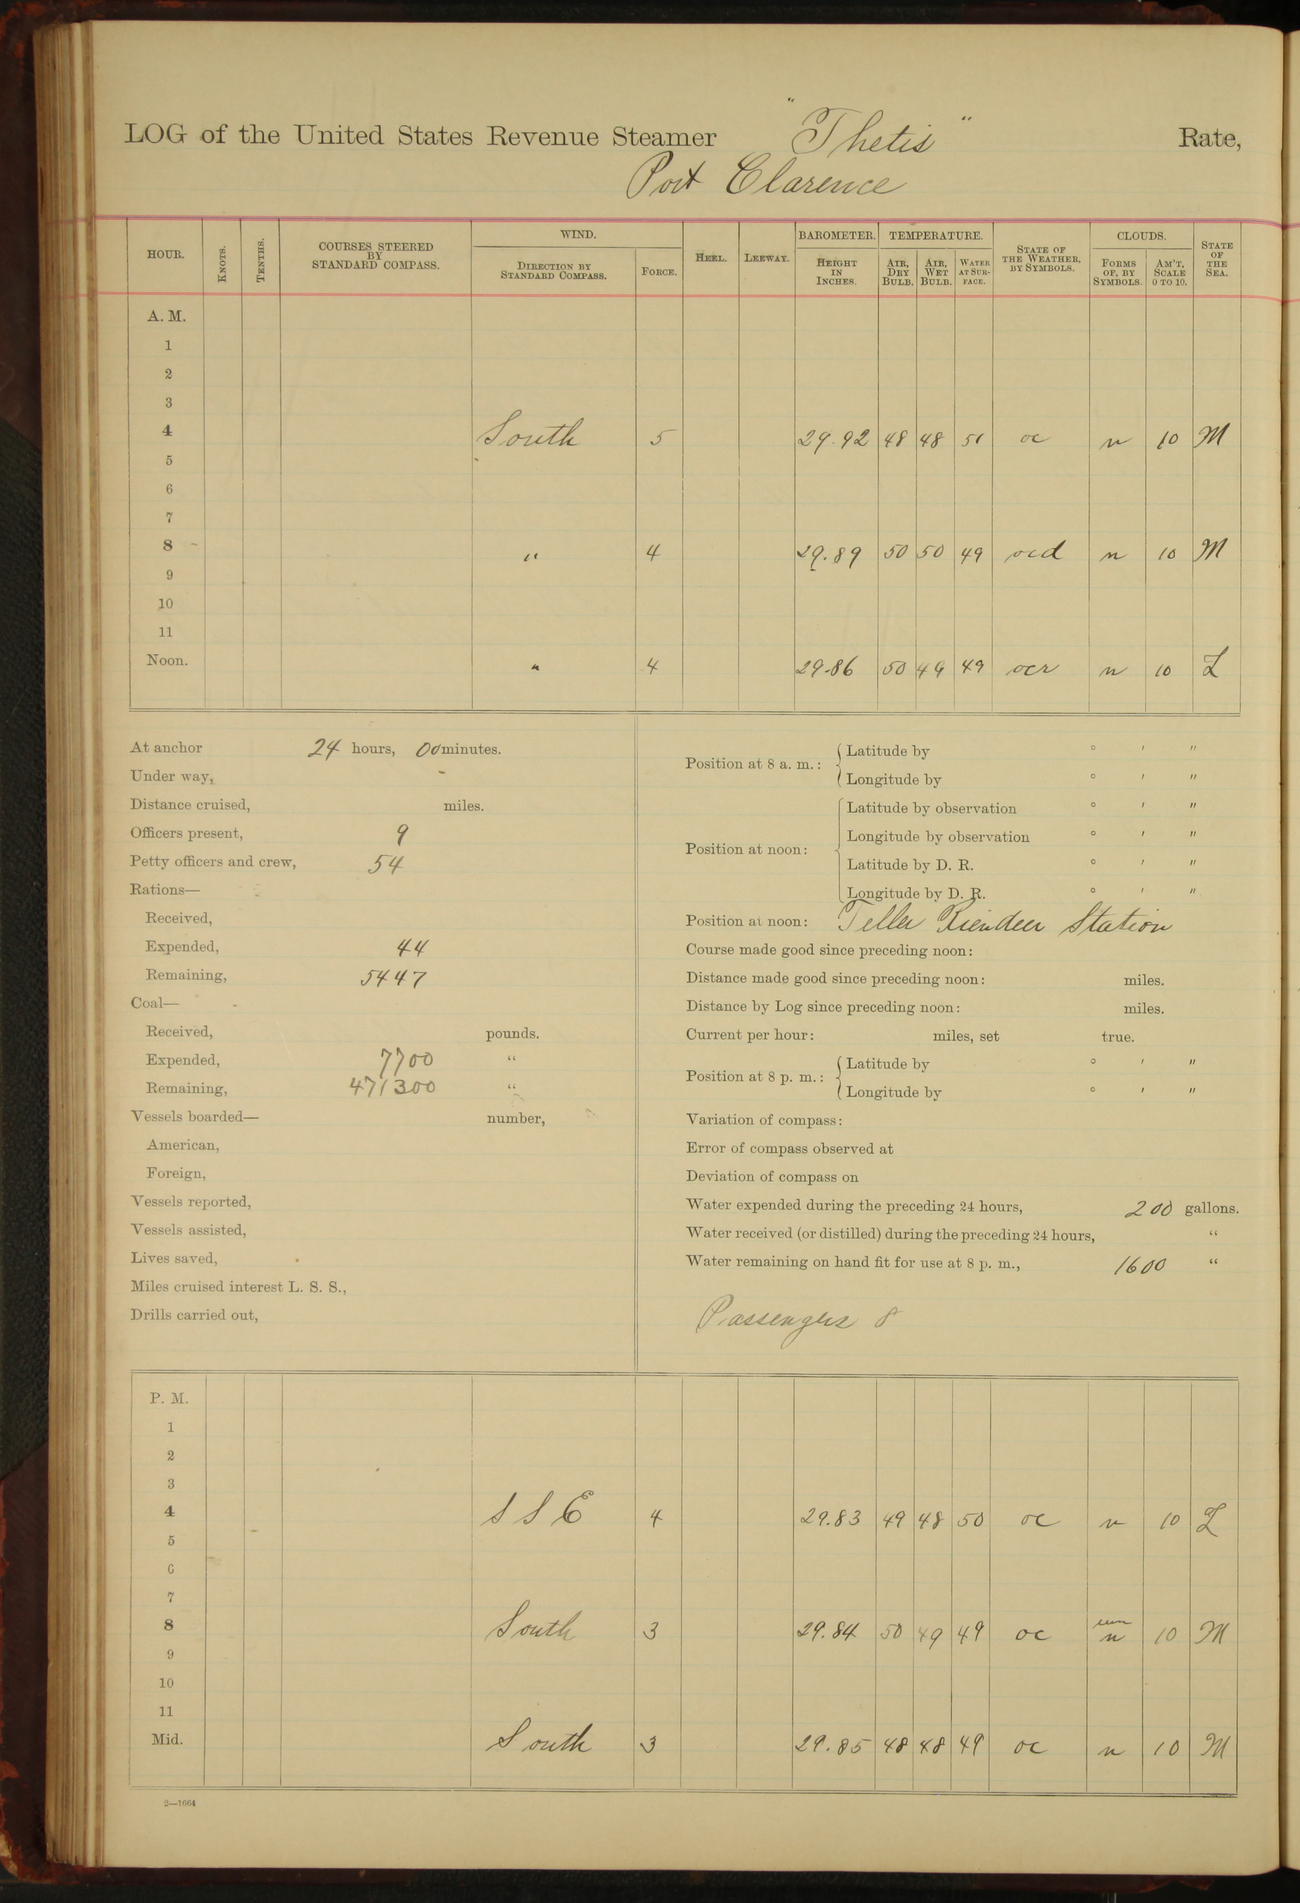 LOG of the United States Revenue Steamer "Thetis" Rate,
Port Clarence
HOUR. KNOTS. TENTHS. COURSES STEERED BY STANDARD COMPASS. WIND. DIRECTION BY STANDARD COMPASS. FORCE. HEEL. LEEWAY. BAROMETER. HEIGHT IN INCHES. TEMPERATURE. AIR, DRY BULB. AIR, WET BULB. WATER AT SURFACE. STATE OF THE WEATHER, BY SYMBOLS. CLOUDS. FORMS OF, BY SYMBOLS. AM'T, SCALE 0 TO 10. STATE OF THE SEA.
A. M.
1
2
3
4 South 5 29.92 48 48 51 oc n 10 M
5
6
7
8 " 4 29.89 50 50 49 ocd n 10 M
9
10
11
Noon. " 4 29.86 50 49 49 ocr n 10 L
At anchor 24 hours, 00 minutes.
Under way,
Distance cruised, miles.
Officers present, 9
Petty officers and crew, 54
Rations—
Received,
Expended, 44
Remaining, 5447
Coal—
Received, pounds.
Expended, 7700 "
Remaining, 471300 "
Vessels boarded— number,
American,
Foreign,
Vessels reported,
Vessels assisted,
Lives saved,
Miles cruised interest L. S. S.,
Drills carried out,
Position at 8 a. m.: Latitude by ° ' "
Longitude by ° ' "
Position at noon: Latitude by observation ° ' "
Longitude by observation ° ' "
Latitude by D. R. ° ' "
Longitude by D. R. ° ' "
Position at noon: Teller Riendeer Station
Course made good since preceding noon:
Distance made good since preceding noon: miles.
Distance by Log since preceding noon: miles.
Current per hour: miles, set true.
Position at 8 p. m.: Latitude by ° ' "
Longitude by ° ' "
Variation of compass:
Error of compass observed at
Deviation of compass on
Water expended during the preceding 24 hours, 200 gallons.
Water received (or distilled) during the preceding 24 hours, "
Water remaining on hand fit for use at 8 p. m., 1600 "
Passengers 8
P. M.
1
2
3
4 S S E 4 29.83 49 48 50 oc n 10 L
5
6
7
8 South 3 29.84 50 49 49 oc n 10 M
9
10
11
Mid. South 3 29.85 48 48 49 oc n 10 M
2—1664